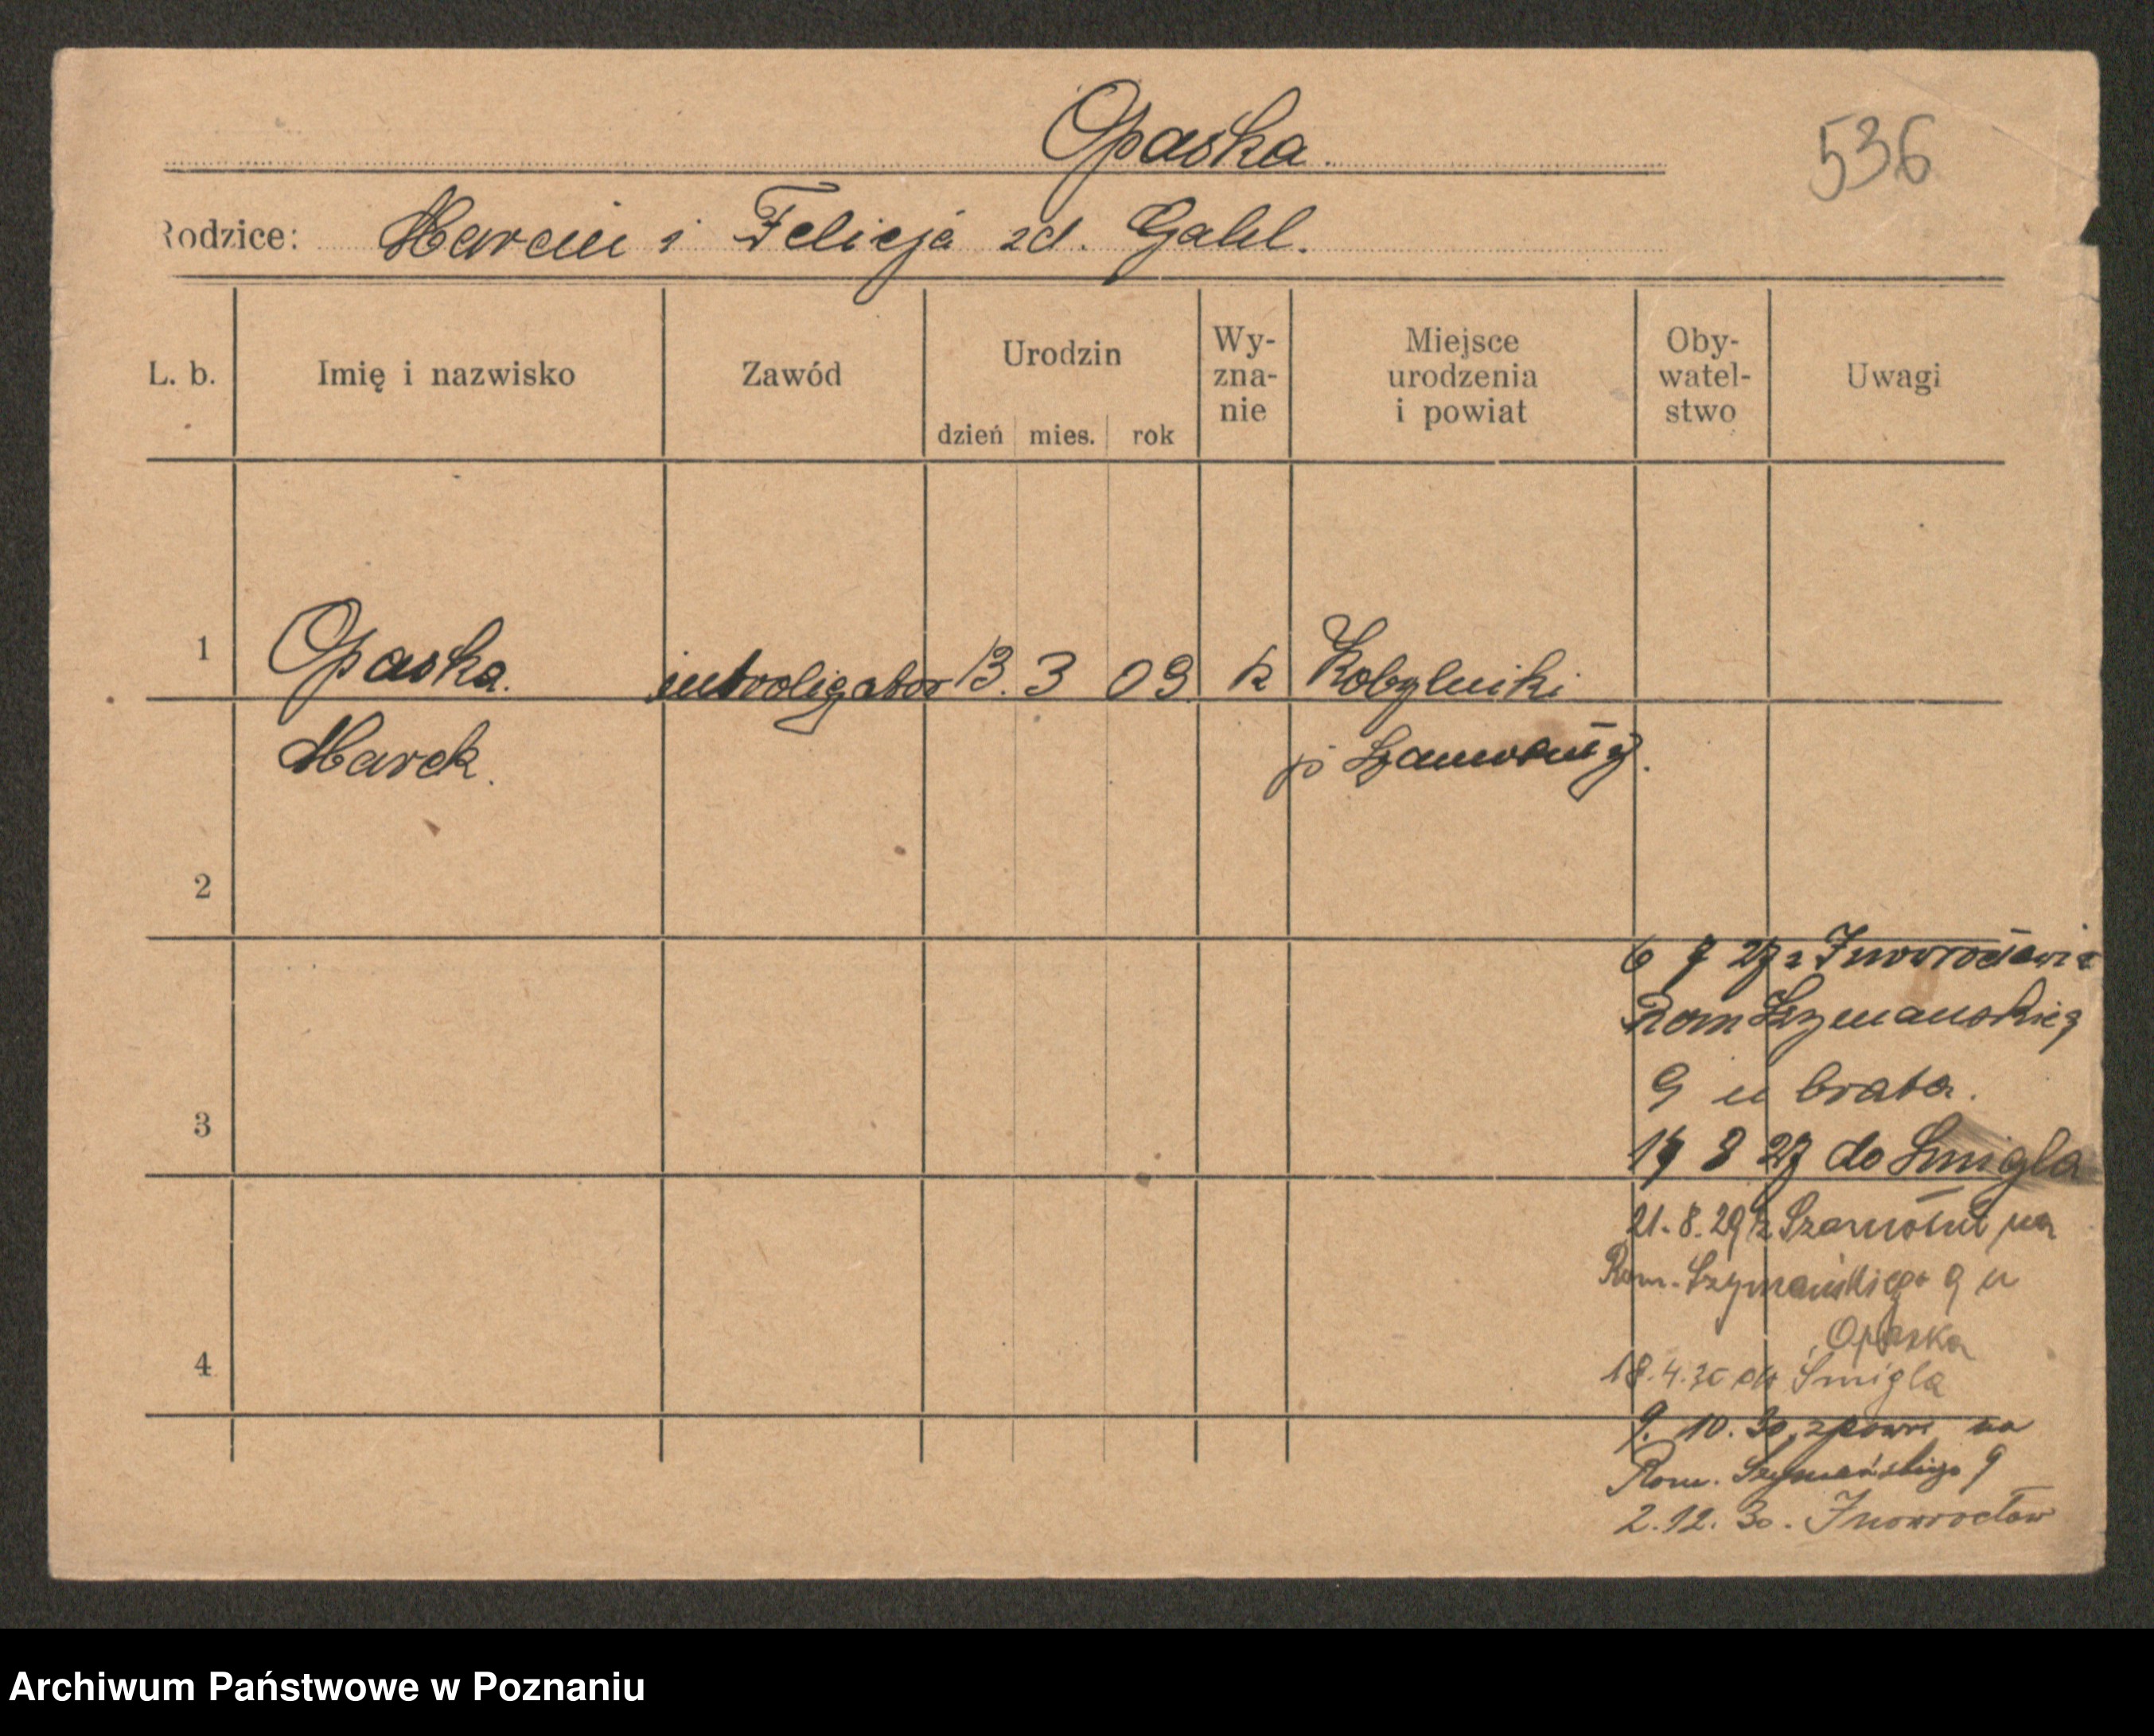 Opaska.
536
Rodzice: Marcin i Felicja zd. Gabl.
L. b. Imię i nazwisko Zawód Urodzin dzień mies. rok Wy-zna-nie Miejsce urodzenia i powiat Oby-watel-stwo Uwagi
1 Opaska. introligator 13. 3 09. k Kobylniki
Marek. p Szamotuły.
2
6 7 27 z Inowrocławia
Rom Szymańskieg
9 u brata.
3
17 8 27 do Śmigla
21. 8. 29 z Szamotuł na
Rom. Szymańskiego 9 u
Opaska
4
18. 4. 30 do Śmigla
9. 10. 30, zpowr. na
Rom. Szymańskiego 9
2. 12. 30. Inowrocław
Archiwum Państwowe w Poznaniu